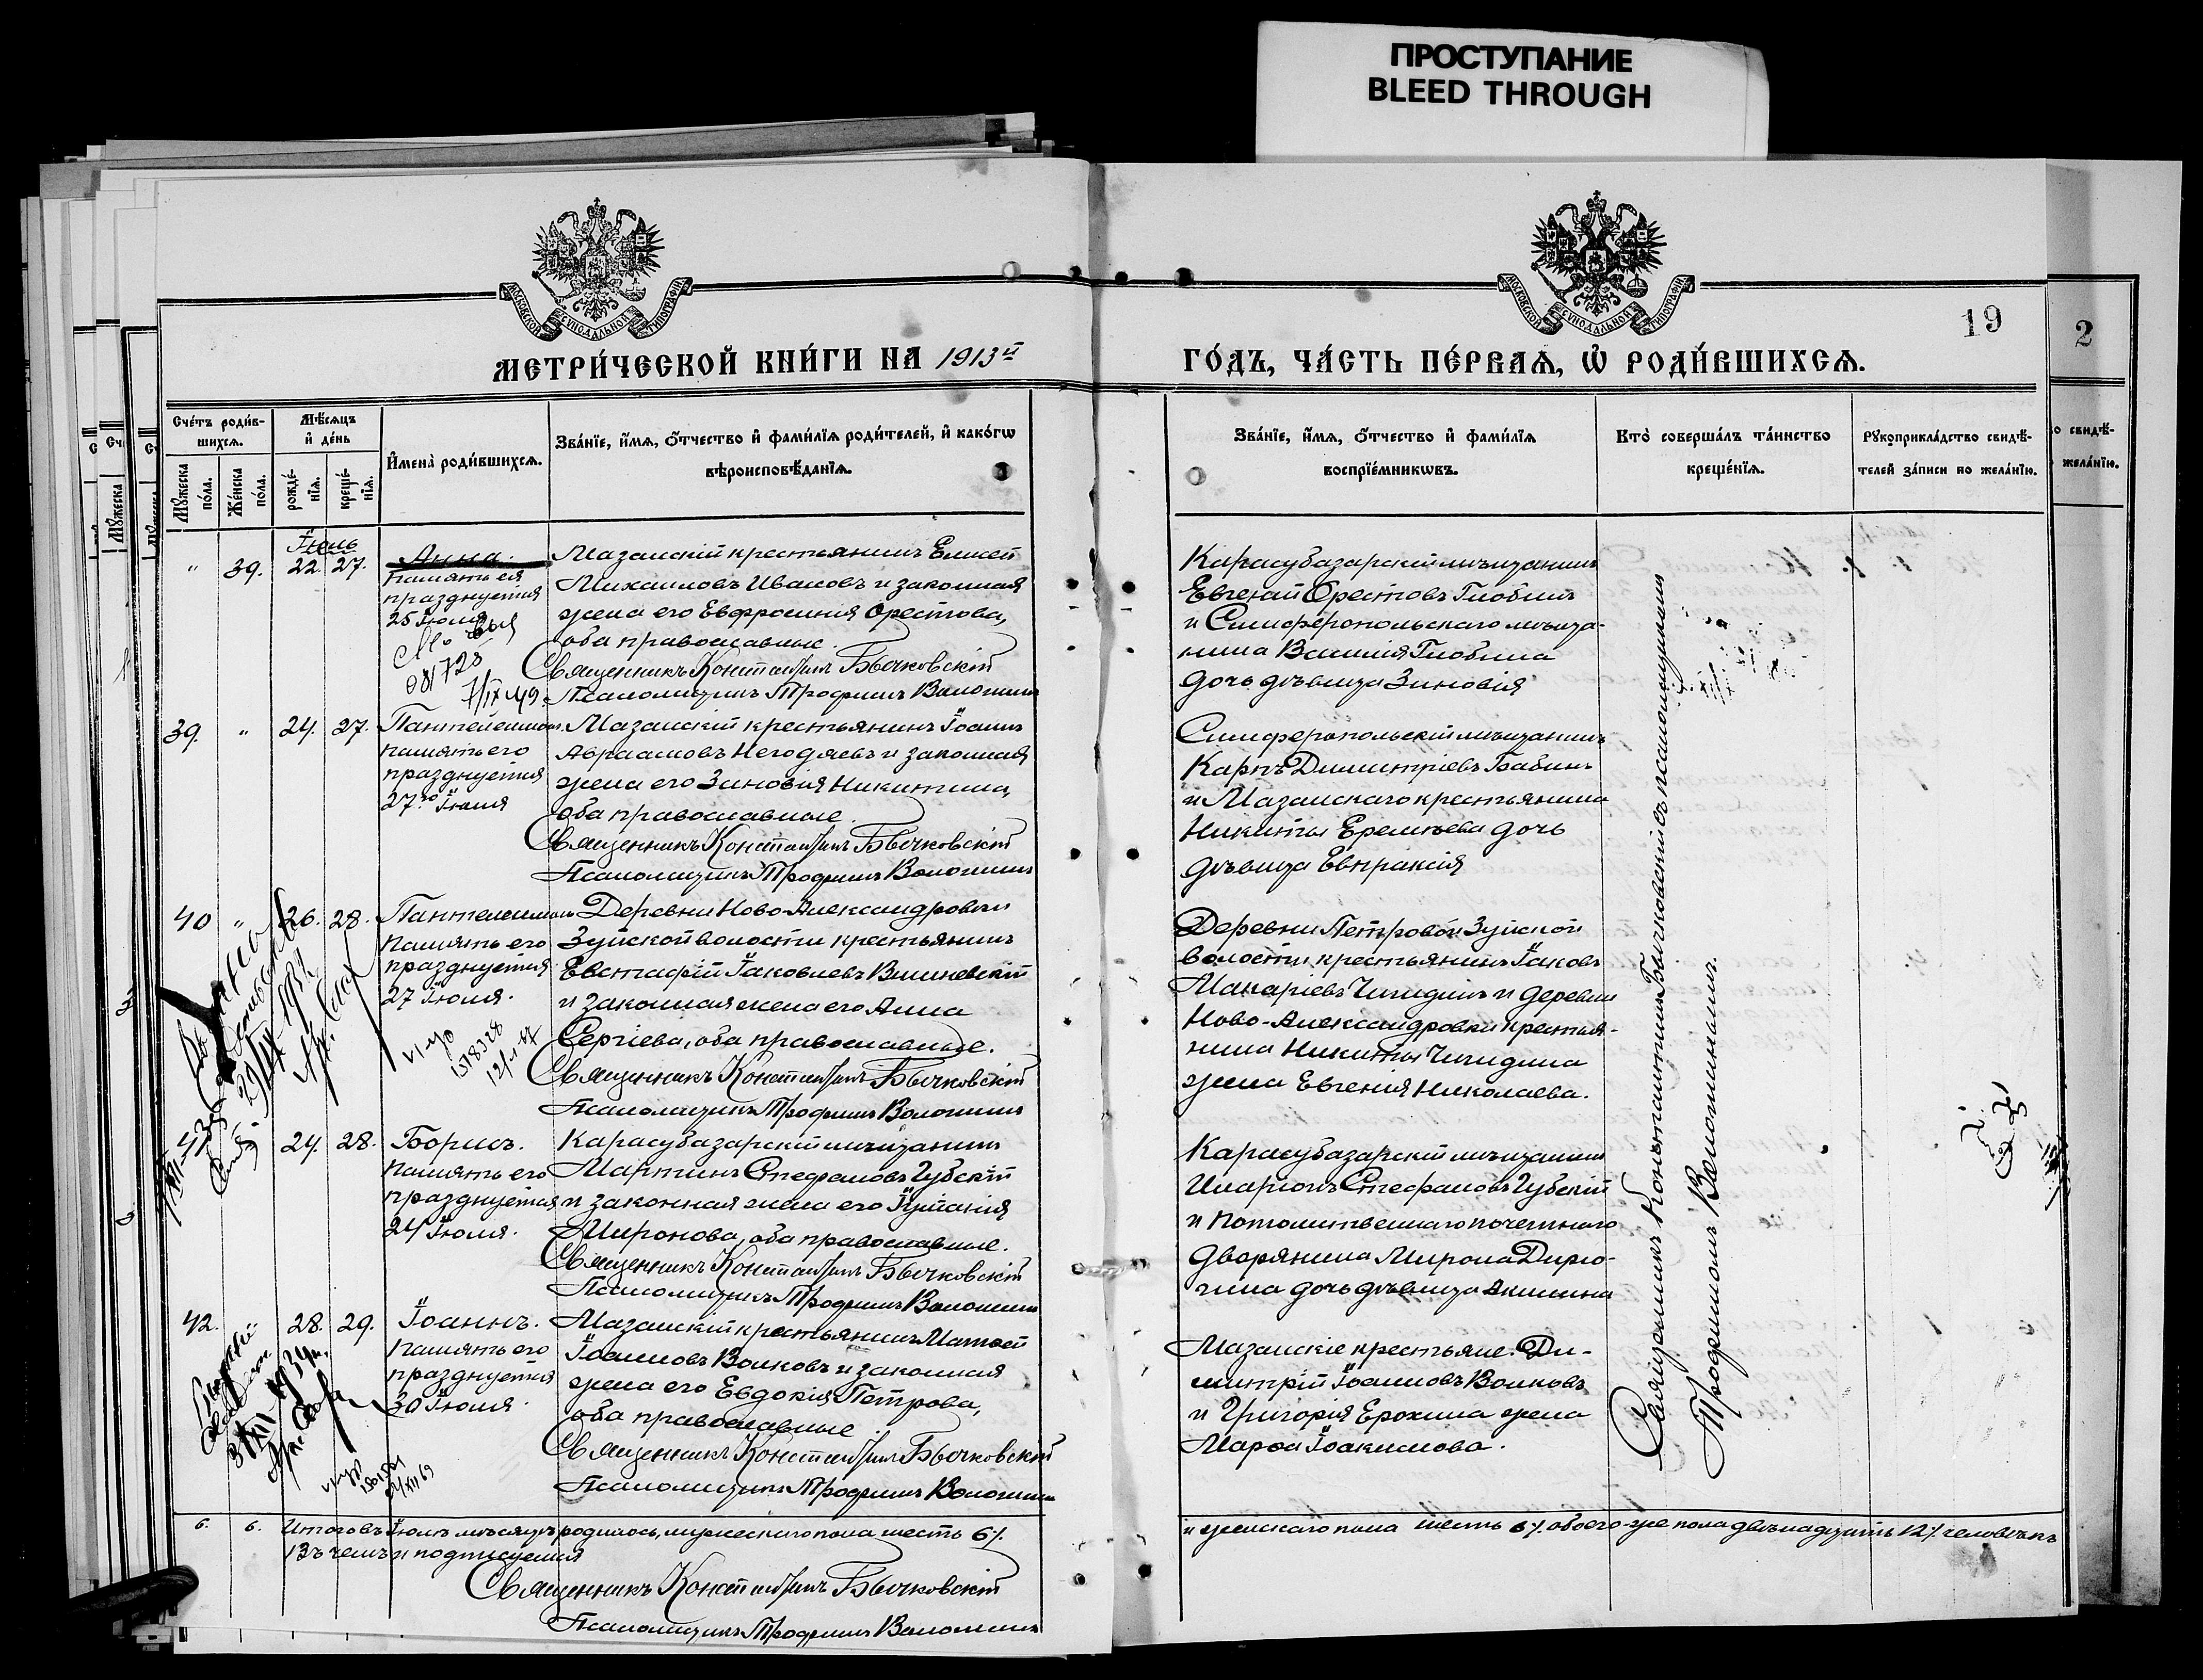 ПРОСТУПАНИЕ
BLEED THROUGH
МОСКОВСКОЙ СУНОДАЛЬНОЙ ТИПОГРАФІИ
МОСКОВСКОЙ СУНОДАЛЬНОЙ ТИПОГРАФІИ
19
2
МЕТРИ́ЧЕСКОЙ КНИ́ГИ НА 1913й
ГО́ДЪ, ЧА́СТЬ ПЕ́РВАѦ, Ѡ РОДИ́ВШИХСѦ.
Сче́тъ роди́в-
шихсѧ.
Мѣ́сѧцъ
и де́нь
Имена̀ роди́вшихсѧ.
Зва́нїе, и́мѧ, о́тчество и фами́лїѧ роди́телей, и како́гѡ
вѣроисповѣ́данїѧ.
Мꙋ́жеска
по́ла.
Же́нска
по́ла.
рожде́-
нїѧ.
креще́-
нїѧ.
Зва́нїе, и́мѧ, о́тчество и фами́лїѧ
воспрїе́мникѡвъ.
Кто̀ соверша́лъ та́инство
креще́нїѧ.
Рꙋкоприкла́дство свидѣ́-
телей за́писи по жела́нїю.
о свидѣ́-
жела́нїю.
Іюль
" 39. 22. 27. Анна.
память ея
празднуется
25 Іюля
081723
7/IX 49.
Мазанскій крестьянинъ Елисей
Михаиловъ Ивановъ и законная
жена его Евфросинія Орестова,
оба православные.
Священникъ Константинъ Бычковскій
Псаломщикъ Трофимъ Волошинъ
Карасубазарскій мѣщанинъ
Евгеній Орестовъ Глобинъ
и Симферопольскаго мѣща-
нина Василія Глобина
дочь дѣвица Зиновія
39. " 24. 27. Пантелеимонъ
память его
празднуется
27го Іюля
Мазанскій крестьянинъ Іоаннъ
Авраамовъ Негодяевъ и законная
жена его Зиновія Никитина,
оба православные.
Священникъ Константинъ Бычковскій
Псаломщикъ Трофимъ Волошинъ
Симферопольскій мѣщанинъ
Карпъ Димитріевъ Бабинъ
и Мазанскаго крестьянина
Никиты Еремѣева дочь
дѣвица Евпраксія
40 " 26. 28. Пантелеимонъ
память его
празднуется
27 Іюля.
Деревни Ново-Александровки
Зуйской волости крестьянинъ
Евстафій Іаковлевъ Вишневскій
и законная жена его Анна
Сергіева, оба православные.
Священникъ Константинъ Бычковскій
Псаломщикъ Трофимъ Волошинъ
Деревни Петровой Зуйской
волости крестьянинъ Іаковъ
Макаріевъ Чигидинъ и деревни
Ново-Александровки крестья-
нина Никиты Чигидина
жена Евгенія Николаева.
41 24. 28. Борисъ.
память его
празднуется
24 Іюля.
Карасубазарскій мѣщанинъ
Мартинъ Стефановъ Губскій
и законная жена его Іустинія
Миронова, оба православные.
Священникъ Константинъ Бычковскій
Псаломщикъ Трофимъ Волошинъ
Карасубазарскій мѣщанинъ
Иларіонъ Стефановъ Губскій
и потомственнаго почетнаго
дворянина Мирона Дирю-
гина дочь дѣвица Акилина
42. " 28. 29. Іоаннъ.
память его
празднуется
30 Іюля.
Мазанскій крестьянинъ Матѳей
Іоанновъ Волковъ и законная
жена его Евдокія Петрова,
оба православные.
Священникъ Константинъ Бычковскій
Псаломщикъ Трофимъ Волошинъ
Мазанскіе крестьяне: Ди-
митрій Іоанновъ Волковъ
и Григорія Ерохина жена
Марѳа Іоакимова.
Священникъ Константинъ Бычковскій съ псаломщикомъ
Трофимомъ Волошинымъ.
6. 6. Итого въ Іюлѣ мѣсяцѣ родилось, мужескаго пола шесть 6/.
и женскаго пола шесть 6/. обоего-же пола двѣнадцать 12/. человѣкъ
Въ чемъ и подписуемся
Священникъ Константинъ Бычковскій
Псаломщикъ Трофимъ Волошинъ